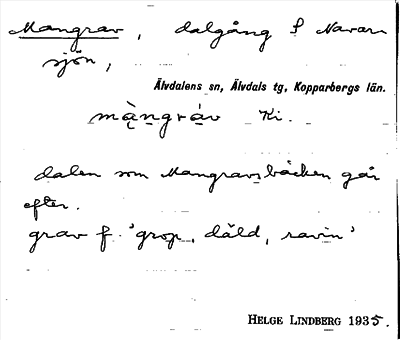 Mangrav, dalgång f Navar-
sjön,
Älvdalens sn, Älvdals tg, Kopparbergs län.
màngráv Ki.
dalen som Mangravsbäcken går
efter.
grav f. 'grop, däld, ravin'
HELGE LINDBERG 1935.